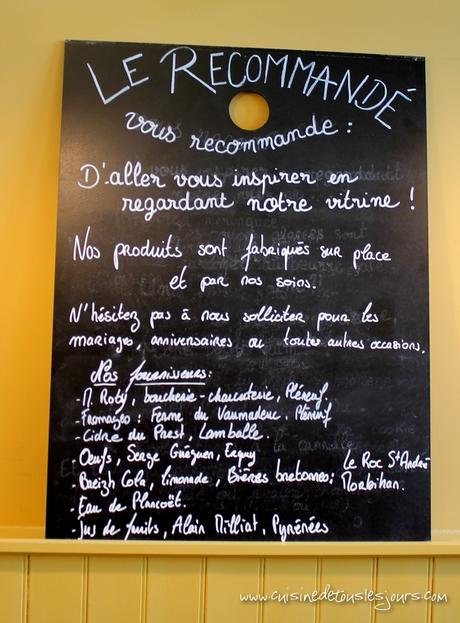 LE RECOMMANDÉ
vous recommande :
D'aller vous inspirer en
regardant notre vitrine !
Nos produits sont fabriqués sur place
et par nos soins.
N'hésitez pas à nous solliciter pour les
mariages, anniversaires ou toutes autres occasions.
Nos fournisseurs :
- M. Roty, boucherie-charcuterie, Pléneuf.
- Fromages : Ferme du Vaumadeuc, Pléneuf
- Cidre du Prest, Lamballe.
- Oeufs, Serge Guéguen, Erquy
- Breizh Cola, limonade, Bières bretonnes : Le Roc St André
Morbihan.
- Eau de Plancoët.
- Jus de fruits, Alain Milliat, Pyrénées
www.cuisinedetouslesjours.com